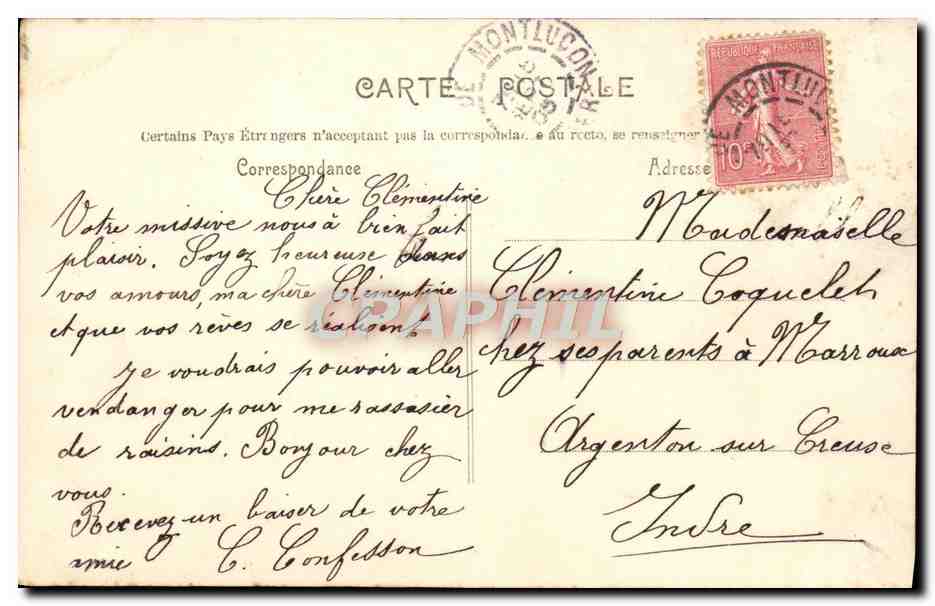 CARTE POSTALE
Certains Pays Étrangers n'acceptant pas la correspondance au recto, se renseigner
Correspondance
Chère Clémentine
Votre missive nous à bien fait
plaisir. Soyez heureuse dans
vos amours, ma chère Clémentine
et que vos rêves se réalisent
Je voudrais pouvoir aller
vendanger pour me rassasier
de raisins. Bonjour chez
vous.
Recevez un baiser de votre
amie C. Confesson
Adresse
Mademoiselle
Clémentine Coquelet
chez ses parents à Marroux
Argenton sur Creuse
Indre
RÉPUBLIQUE FRANÇAISE
10
MONTLUÇON
MONTLU
CPAPHIL